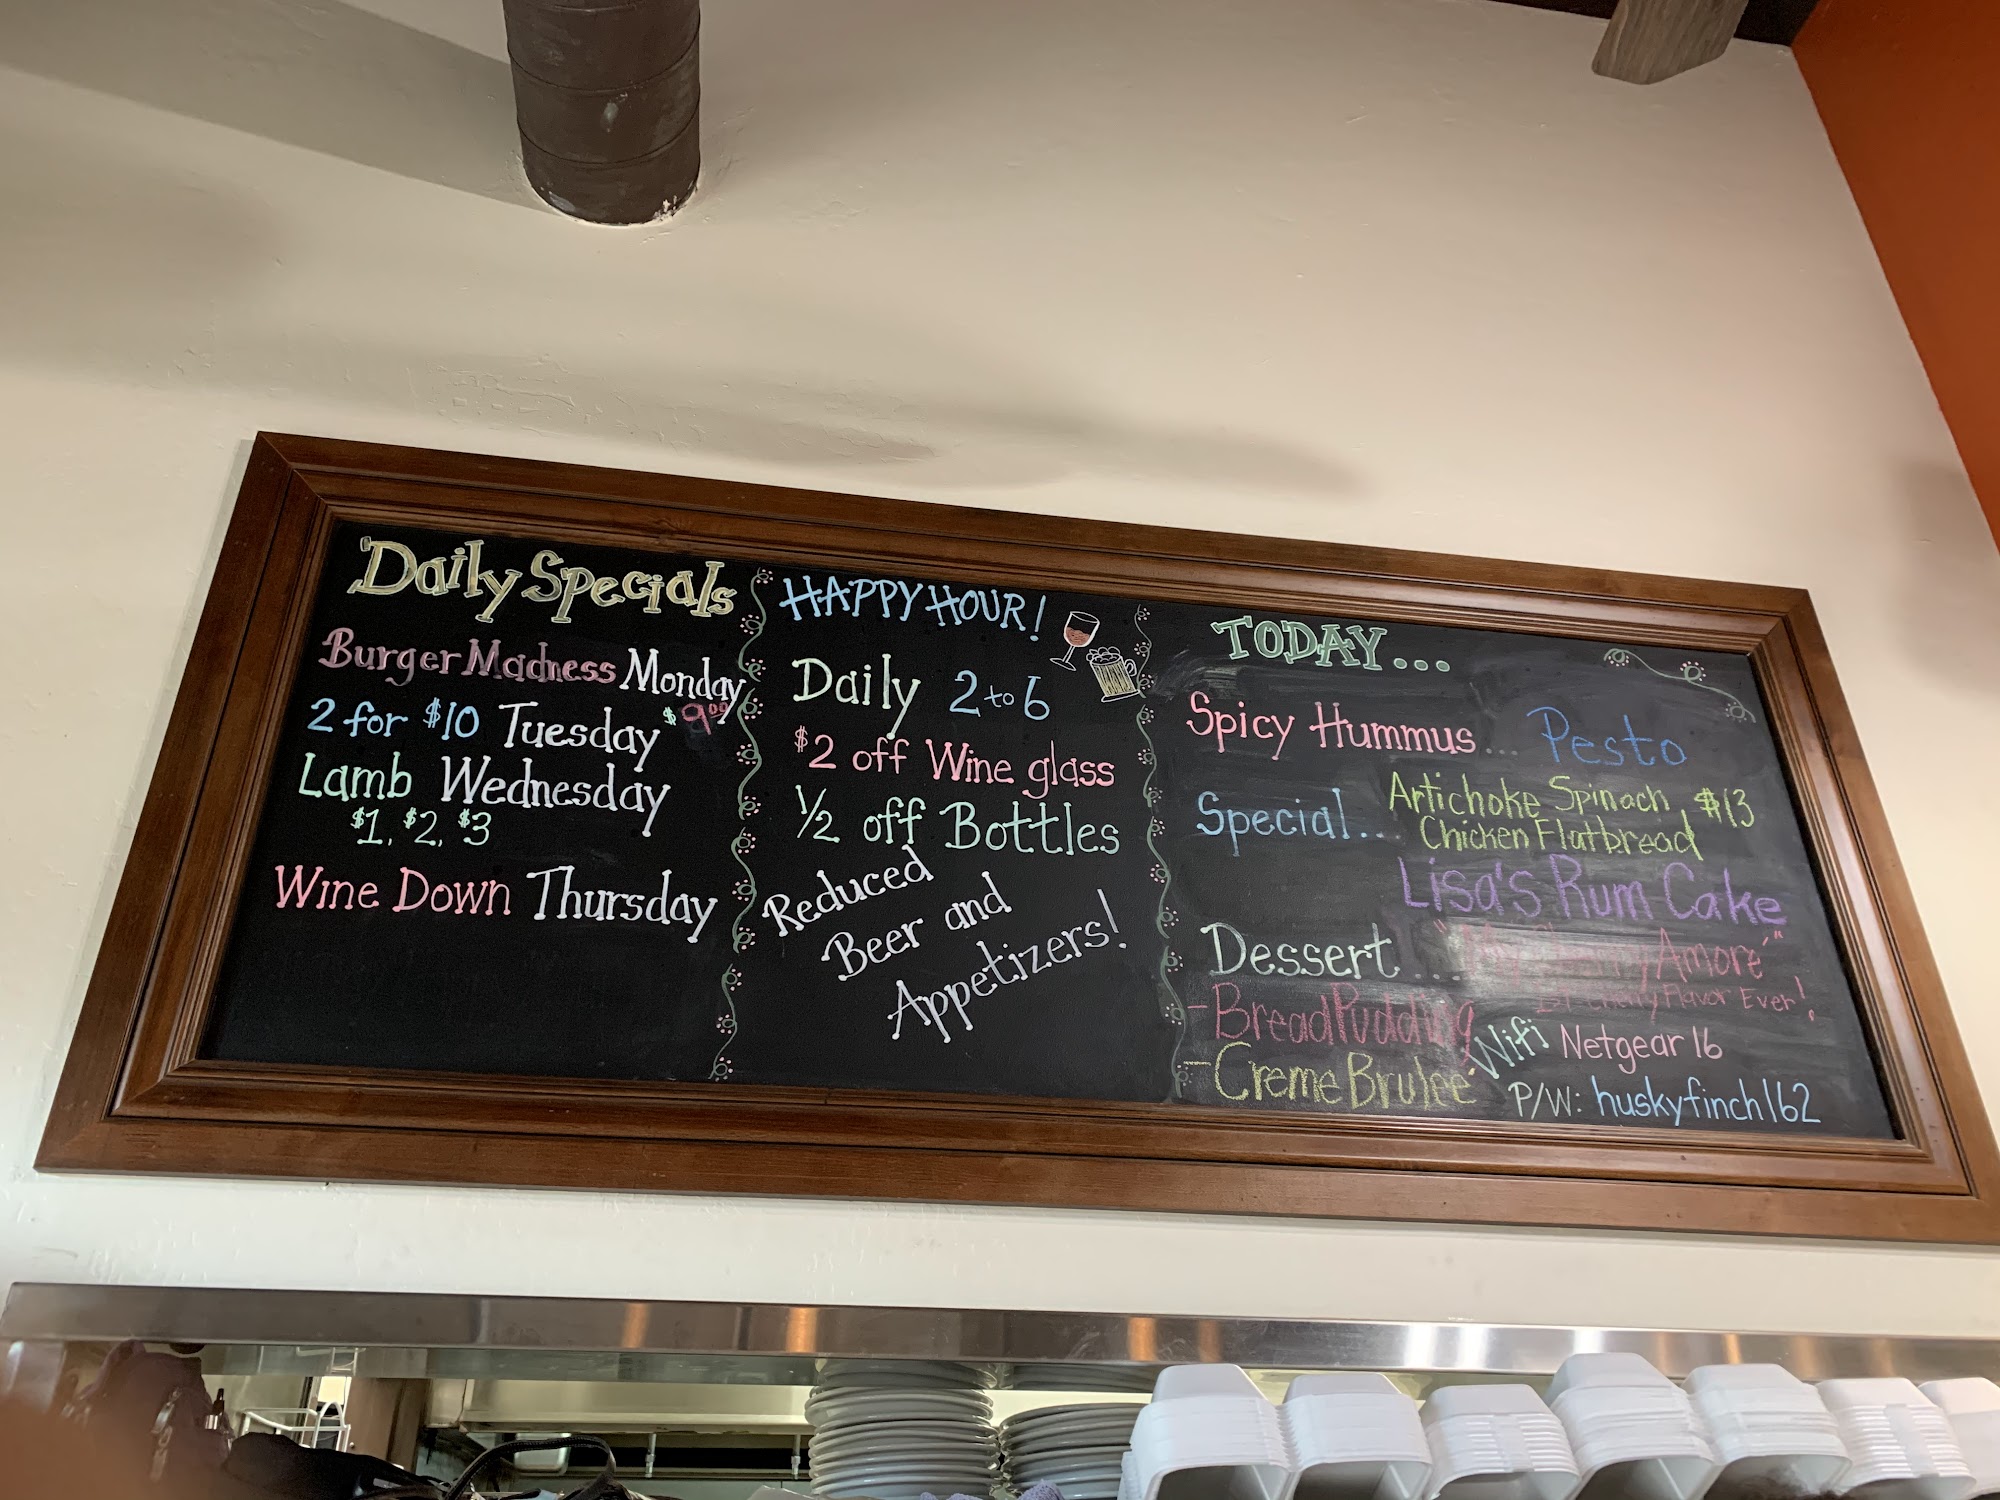 Daily Specials
Burger Madness Monday
$9.00
2 for $10 Tuesday
Lamb Wednesday
$1, $2, $3
Wine Down Thursday
HAPPY HOUR!
Daily 2 to 6
$2 off Wine glass
1/2 off Bottles
Reduced
Beer and
Appetizers!
TODAY...
Spicy Hummus... Pesto
Special... Artichoke Spinach $13
Chicken Flatbread
Lisa's Rum Cake
Dessert.... "My Cherry Amoré"
1st Cherry Flavor Ever!
-Bread Pudding
-Creme Brulee
Wifi Netgear 16
P/W: huskyfinch162